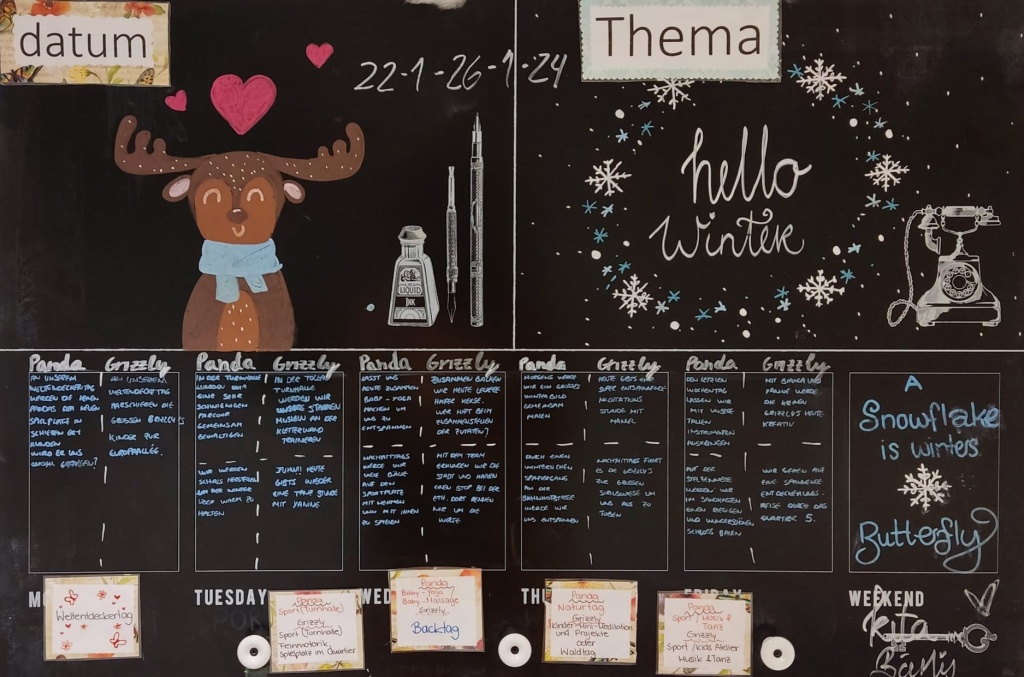 datum
22-1-26-1-24
Thema
hello
Winter
LIQUID
INK
Panda
Grizzly
AN UNSEREM
WELTENDECKERTAG
WERDEN DIE
SPIELPLATZ IN
WIRD ER UNS
GEFALLEN?
AN UNSEREM
WELTENDECKERTAG
MARSCHIEREN DIE
GROSSEN GRIZZLY'S
KINDER ZUR
EUROPAALLEE.
Panda
Grizzly
IN DER TURNHALLE
WERDEN WIR
EINE SEHR
SCHWIERIGEN
PARCOUR
GEMEINSAM
BEWÄLTIGEN
WIR WERDEN
SCHALS
DER WINTER
ÜBER WARM ZU
HALTEN
IN DER TOLLEN
TURNHALLE
WERDEN WIR
UNSERE STARKEN
MUSKELN AN DER
KLETTERWAND
TRAINIEREN
JUHUI! HEUTE
GIBTS WIEDER
EINE TANZ STUNDE
MIT YANINE
Panda
Grizzly
LASST UNS
HEUTE ZUSAMMEN
BABY-YOGA
MACHEN UM
UNS ZU
ENTSPANNEN
NACHMITTAGS
WERDE WIR
VIELE BÄLLE
AUF DEN
SPORTPLATZ
MIT NEHMEN
UND MIT IHNEN
ZU SPIELEN
ZUSAMMEN BACKEN
WIR HEUTE LECKERE
HAFER KEKSE.
WER HILFT BEIM
ZUSAMMENSTELLEN
DER ZUTATEN?
MIT DEM TEAM
ERKUNDEN WIR DIE
STADT UND MACHEN
EINEN STOP BEI DER
ETH. DORT RENNEN
WIR UM DIE
WETTE
Panda
Grizzly
MORGENS WERDE
WIR EIN GROSSES
WINTERBILD
GEMEINSAM
MALEN
DURCH EINEN
WINTERLICHEN
SPAZIERGANG
AN DER
BAHNHOFSTRASSE
WERDE WIR
UNS ENTSPANNEN
HEUTE GIBTS EINE
ENTSPANNENDE
MEDITATIONS
STUNDE MIT
NACHMITTAGS GEHT
ES DIE GRIZZLY'S
ZUR GROSSEN
UM
UNS AUS ZU
TOBEN
Panda
Grizzly
DEN LETZTEN
WOCHENTAG
LASSEN WIR
MIT UNSERE
TOLLEN
INSTRUMENTEN
AUSKLINGEN
AUF DER
WERDEN WIR
IM SANDKASTEN
EINEN RIESIGEN
UND WUNDERSCHÖNEN
SCHLOSS BAUEN
MIT BIANCA UND
WERDE
DIE KLEINEN
GRIZZLY'S HEUTE
KREATIV
WIR GEHEN AUF
EINE SPANNENDE
ENTDECKUNGS-
REISE DURCH DAS
QUARTIER 5.
A
Snowflake
is winters
Butterfly
TUESDAY
WEEKEND
Weltentdeckertag
Panda
Sport (Turnhalle)
Grizzly
Sport (Turnhalle)
Feinmotorik
Spielplatz im Quartier
Panda
Baby-Yoga
Baby-Massage
Grizzly
Backtag
Panda
Naturtag
Grizzly
Kinder-Mini-Meditation
und Projekte
oder
Waldtag
Panda
Sport/Musik &
Tanz
Grizzly
Sport/Kids Atelier
Musik & Tanz
Kita